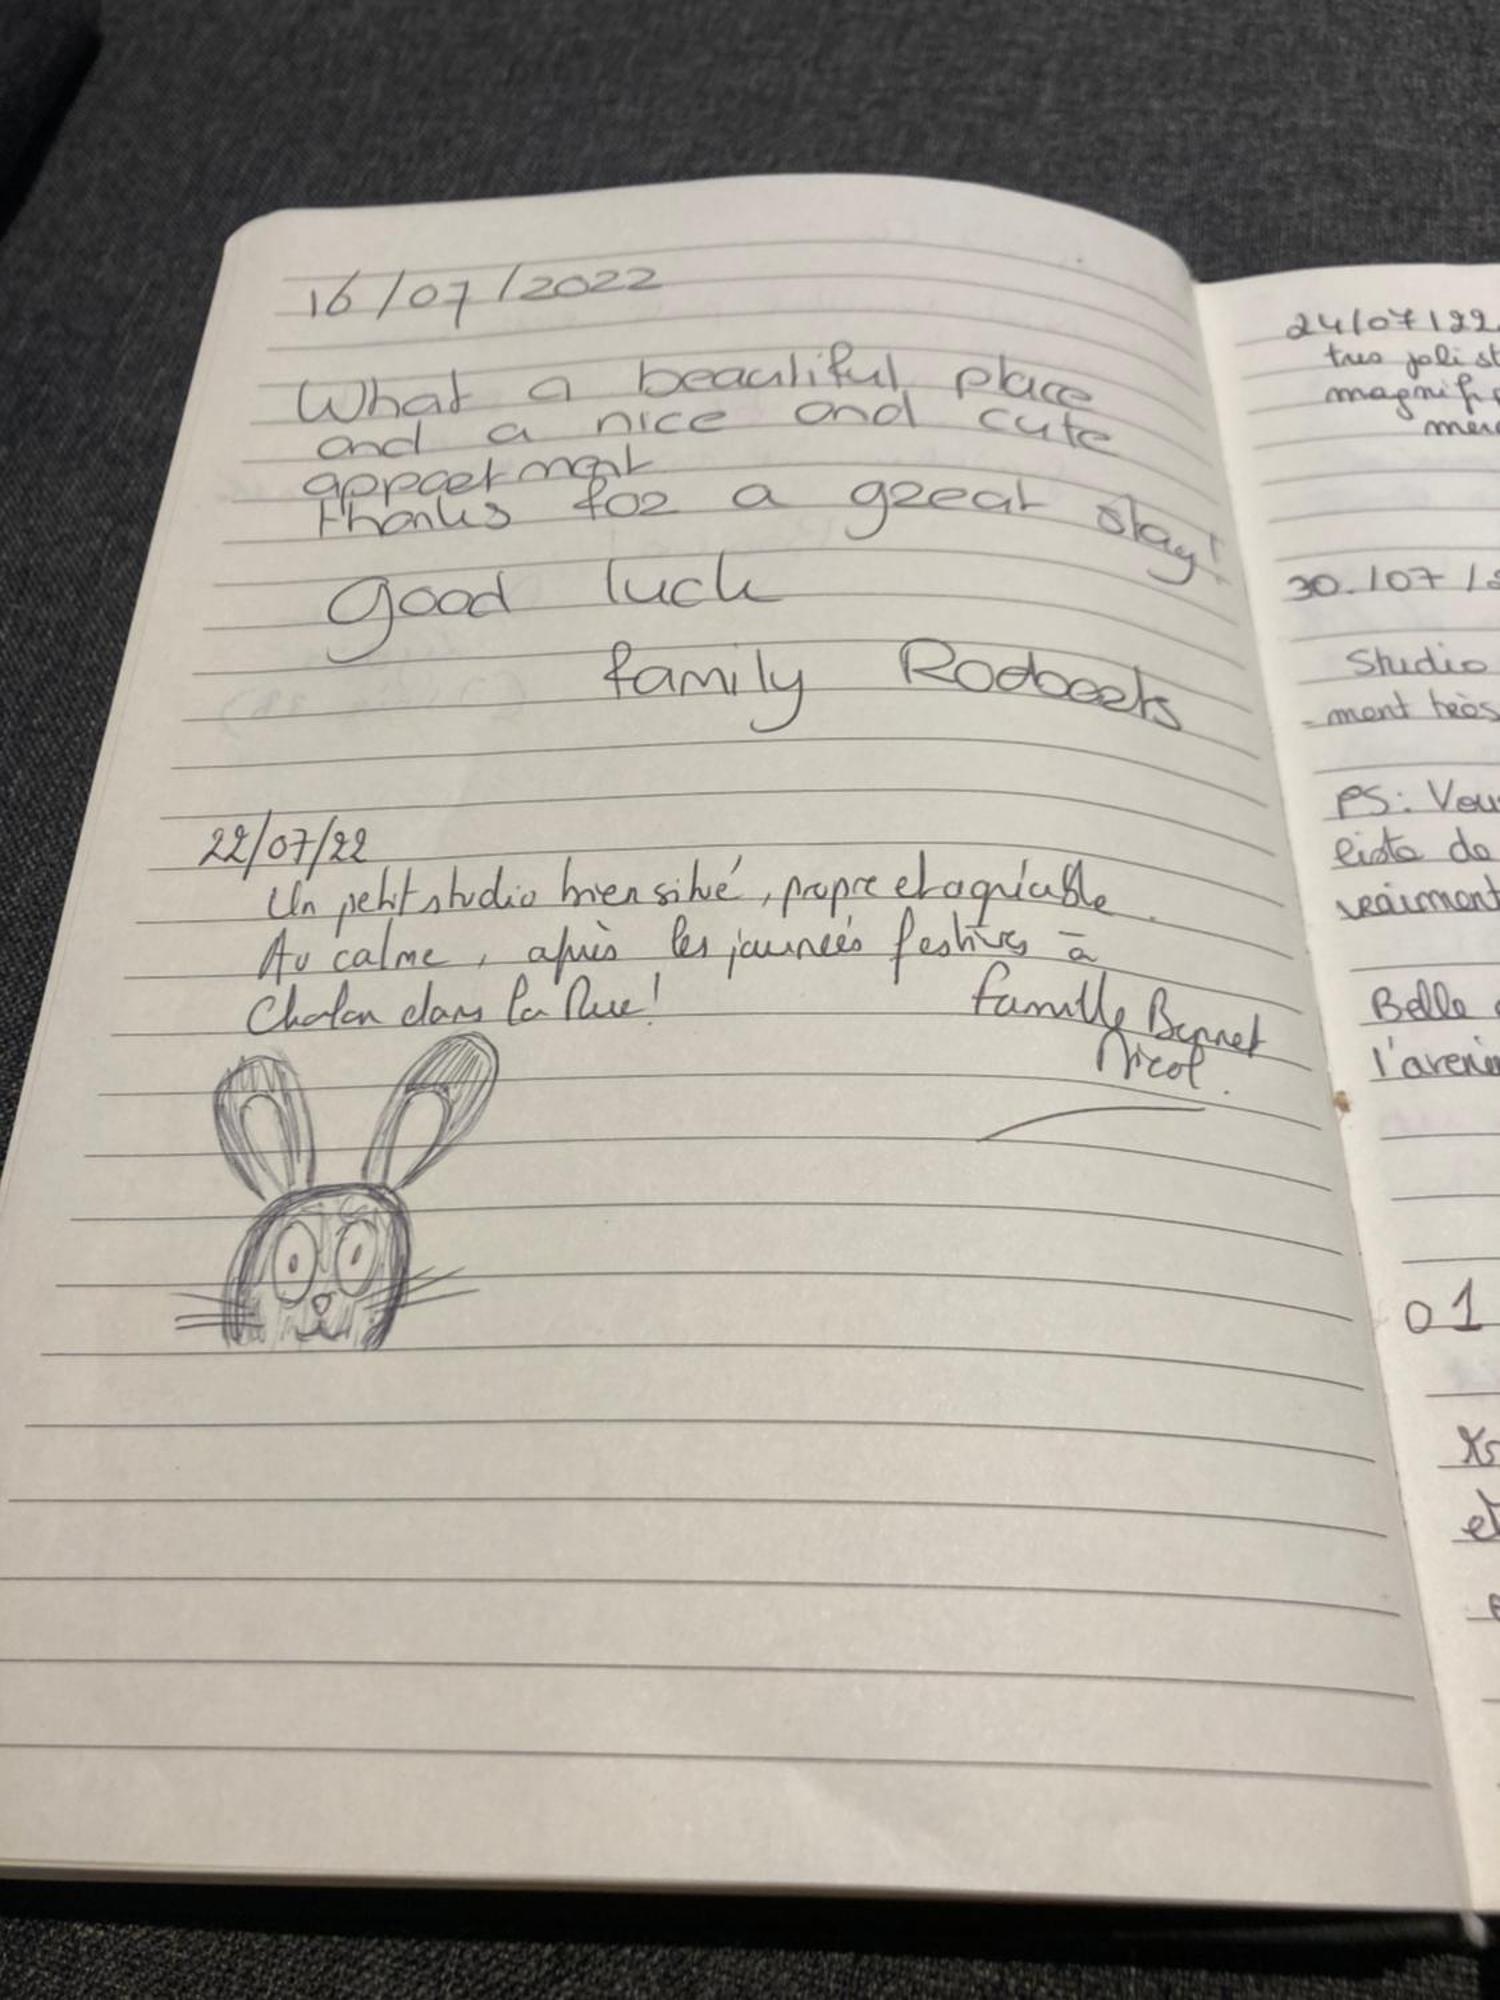 16/07/2022
What a beautiful place
and a nice and cute
appartment
thanks for a great stay!
Good luck
family Rodoorts
22/07/22
Un petit studio bien situé, propre et agréable.
Au calme, après les journées festives à
Chalon dans la Rue!
famille Bonnet
Nicol.
24/07/22
tres joli
magnif
merc
30./07/2
Studio
-ment très
PS: Vous
liste de
vraiment
Belle
l'aveni
01
et